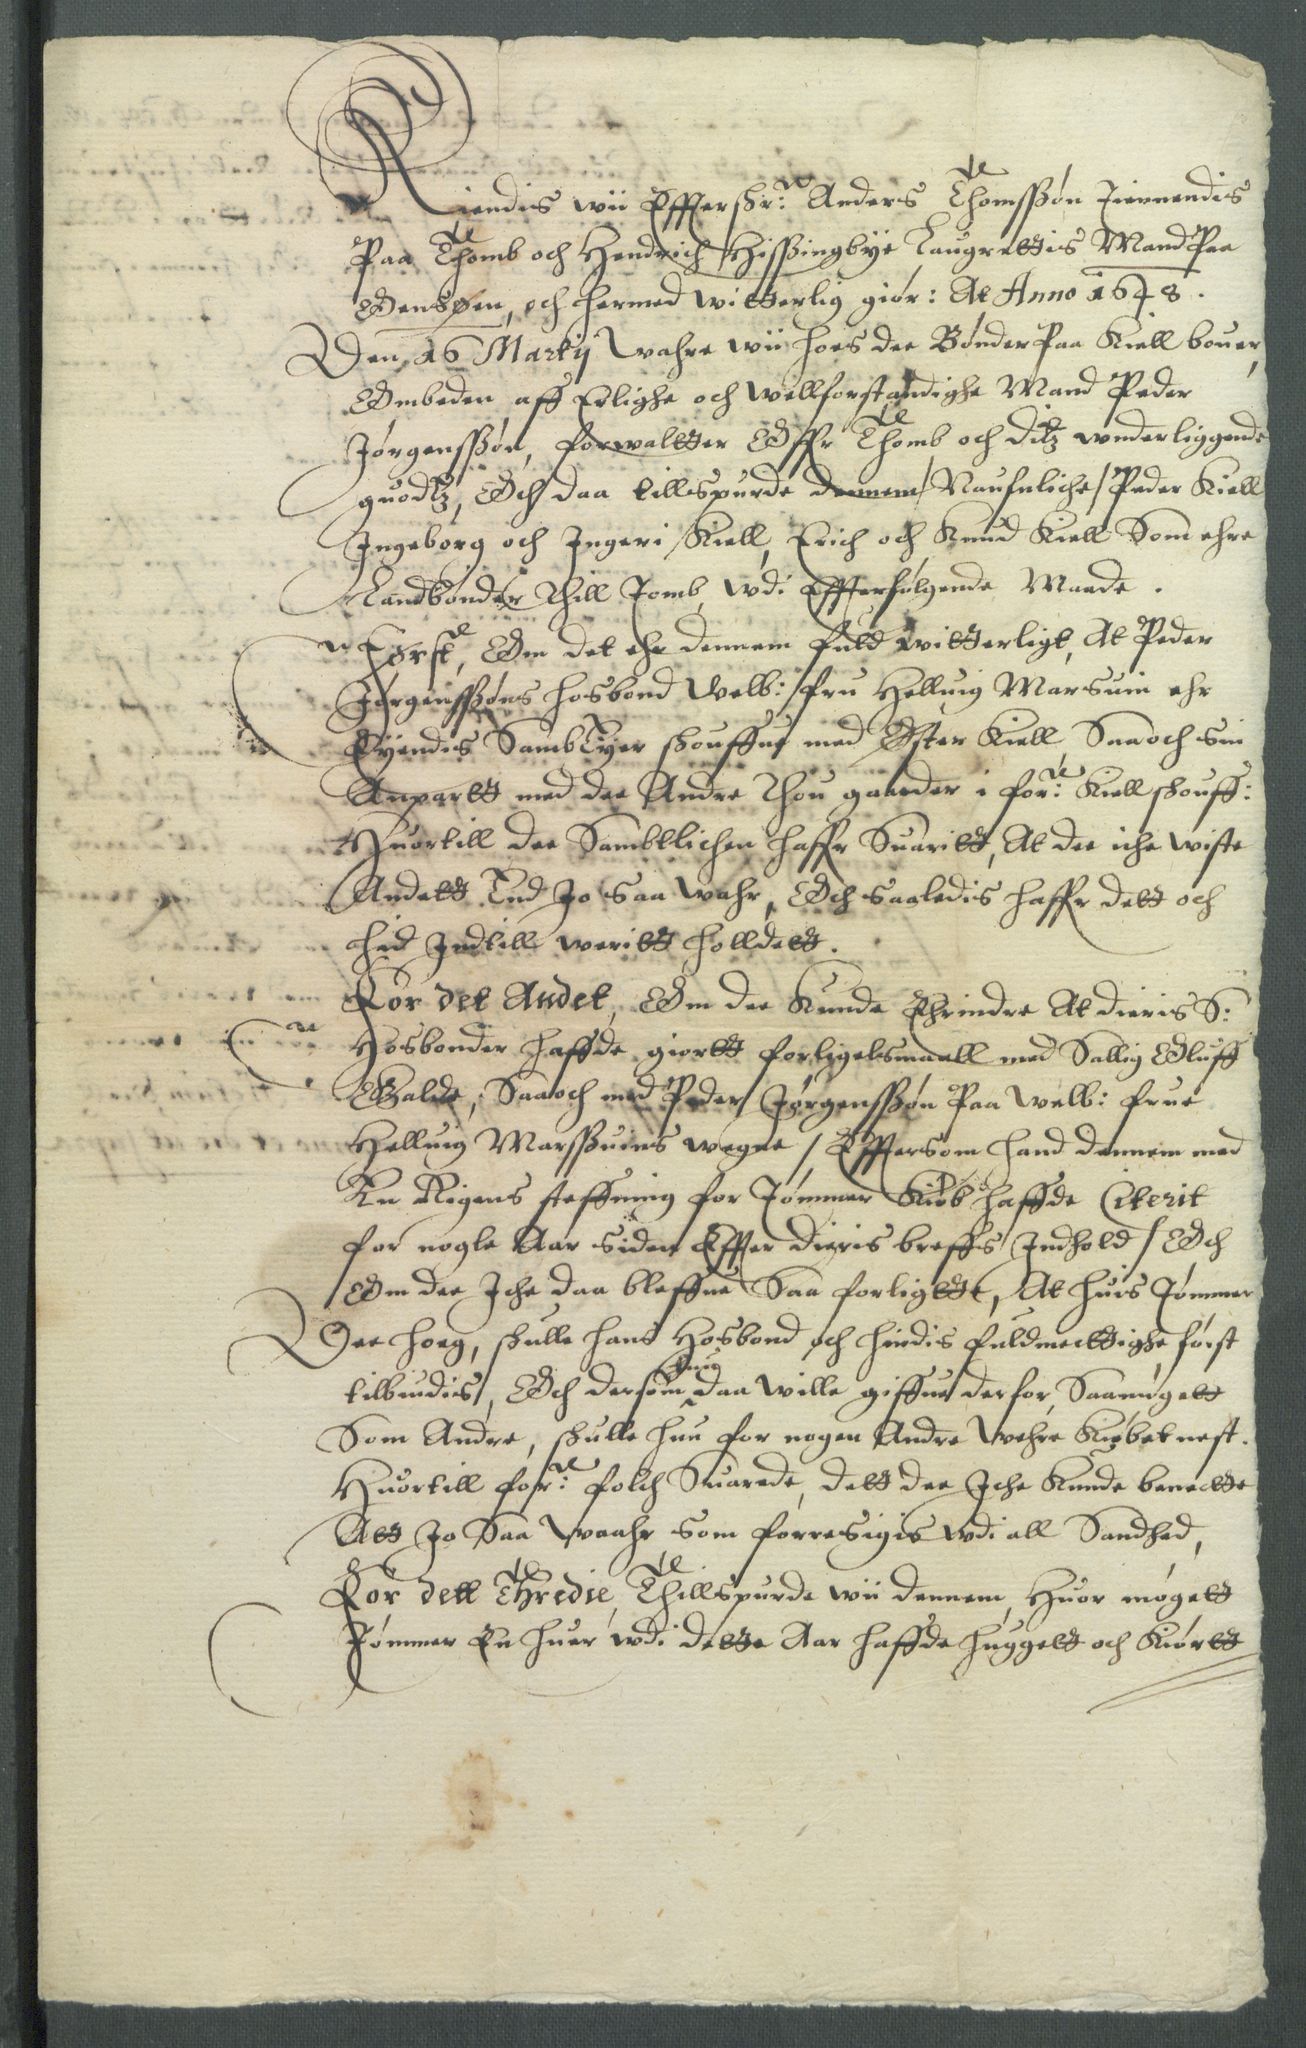 Kiendis wii Effterskr: Anders Thomssøn Tienendis
Paa Thomb och Hendrich Hissingbye Laugrettis Mand Paa
Odensøen, och hermed witterlig giør: At Anno 1648.
Den 16 Martij wahre wii hoes dee Bønder Paa Kiell bouer,
Ombeden aff Erlighe och wellforstandighe Mand Peder
Jørgenssøn, forwaltter Offr Thomb och ditz wnderliggende
guodtz, Och daa tillspurde dennem / Naufnliche / Peder Kiell
Ingeborg och Ingeri Kiell, Erich och Knud Kiell Som ehre
Landbønder Thill Tomb, wdi Effterfølgende Maade.
Først, Om det ehr dennem fuld witterligt, At Peder
Jørgenssøns hosbond Welb: fru Helluig Marsuin ehr
Eyendis Samb Tyer skouffue med Øster Kiell, Saa och sin
Anpartt med dee Andre Thou gaarder i for: Kiell skouff:
Huortill dee Sambtlichen haffr Suaritt, At dee iche wiste
Andett End Jo saa wahr, Och saaledis haffr dett och
hid Indtill weritt holldett.
For det Andet, Om dee Kunde Ehrindre At dieris S:
Hosbonder haffde giortt forligelsmaall med Sallig Oluff
Galde, Saa och med Peder Jørgenssøn Paa welb: frue
Helluig Marssuins wegne / Efftersom hand dennem med
En Rigens steffning for Tømmer Kiøb haffde Citerit
for nogle Aar siden Effter dieris breffs Indhold / Och
Om dee Iche daa bleffue Saa forligtte, At huis Tømmer
Dee hoeg, skulle hans Hosbond och hindis fuldmecttighe først
tilbiudis, Och dersom hun daa wille giffue derfor, Saamøgett
Som Andre, skulle hun for nogen Andre wehre Kiøbet nest.
Huortill for: folch Suarede, dett dee Iche Kunde benectte
Att Jo Saa waahr som forresigis wdi all Sandhed,
For dett Thredie, Thillspurde wii dennem, Huor møgett
Tømmer En huer wdi dette Aar haffde huggett och Kiørtt